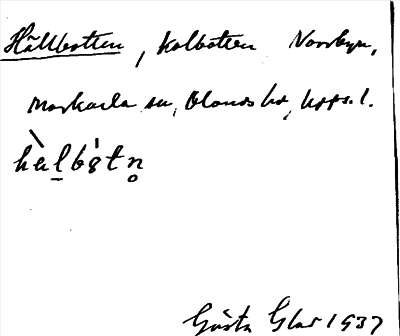 Hällbotten, kolbotten Norrbyn,
Morkarla sn, Olands hd, Upps. l.
hælbåtn̥
Gösta Glas 1937